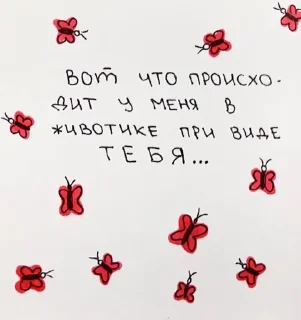 Вот что происхо-
дит у меня в
животике при виде
ТЕБЯ...